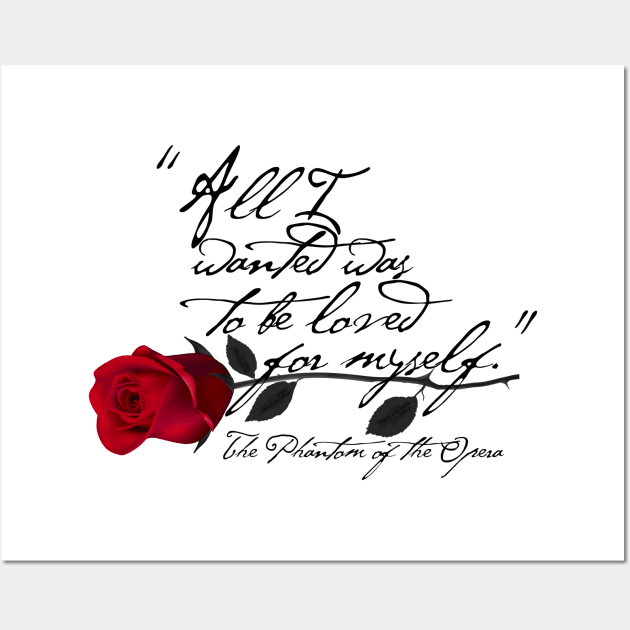 "All I
wanted was
to be loved
for myself."
The Phantom of the Opera